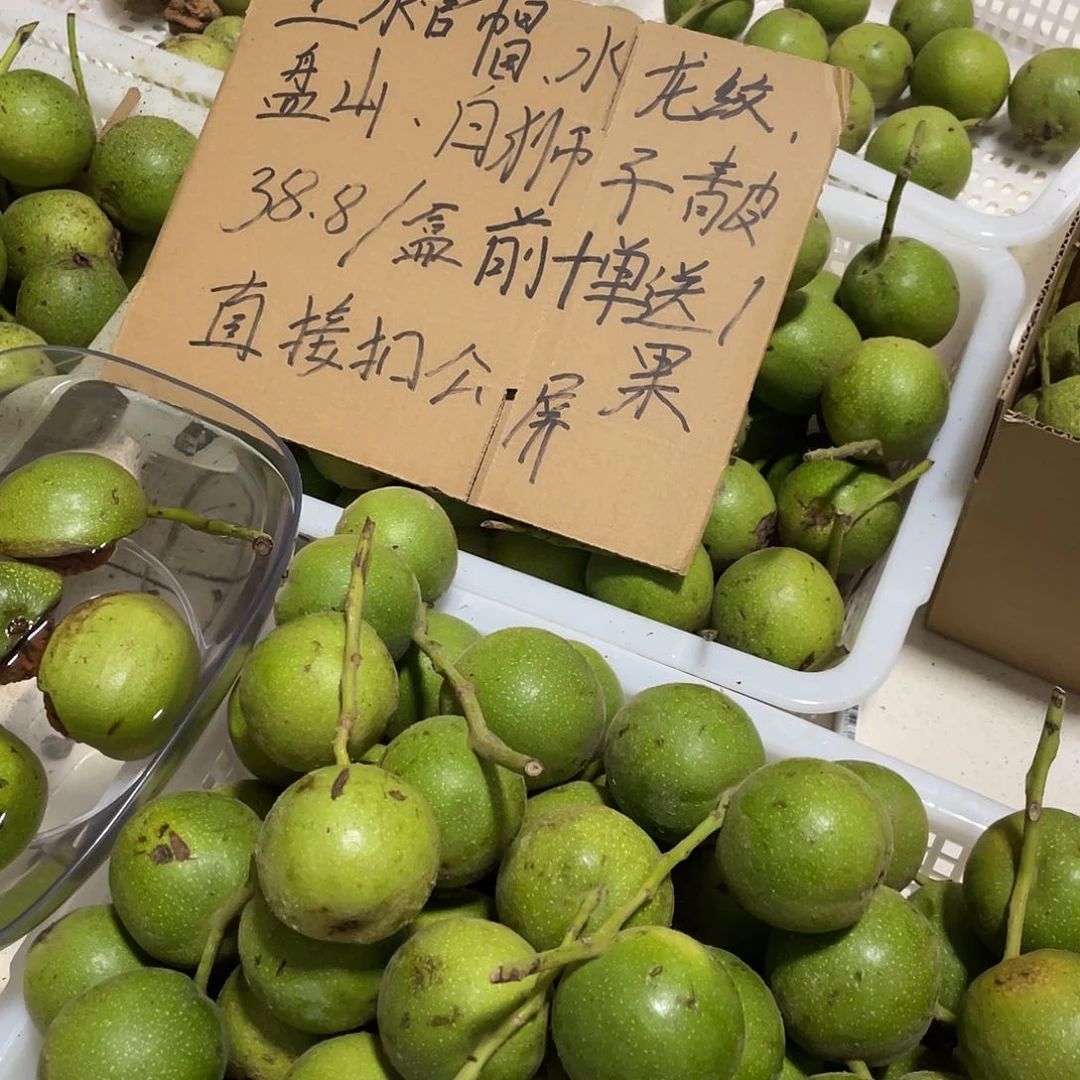 水龙纹,
盘山、白狮子青皮
38.8/盒前十单送1果
直接扣公屏